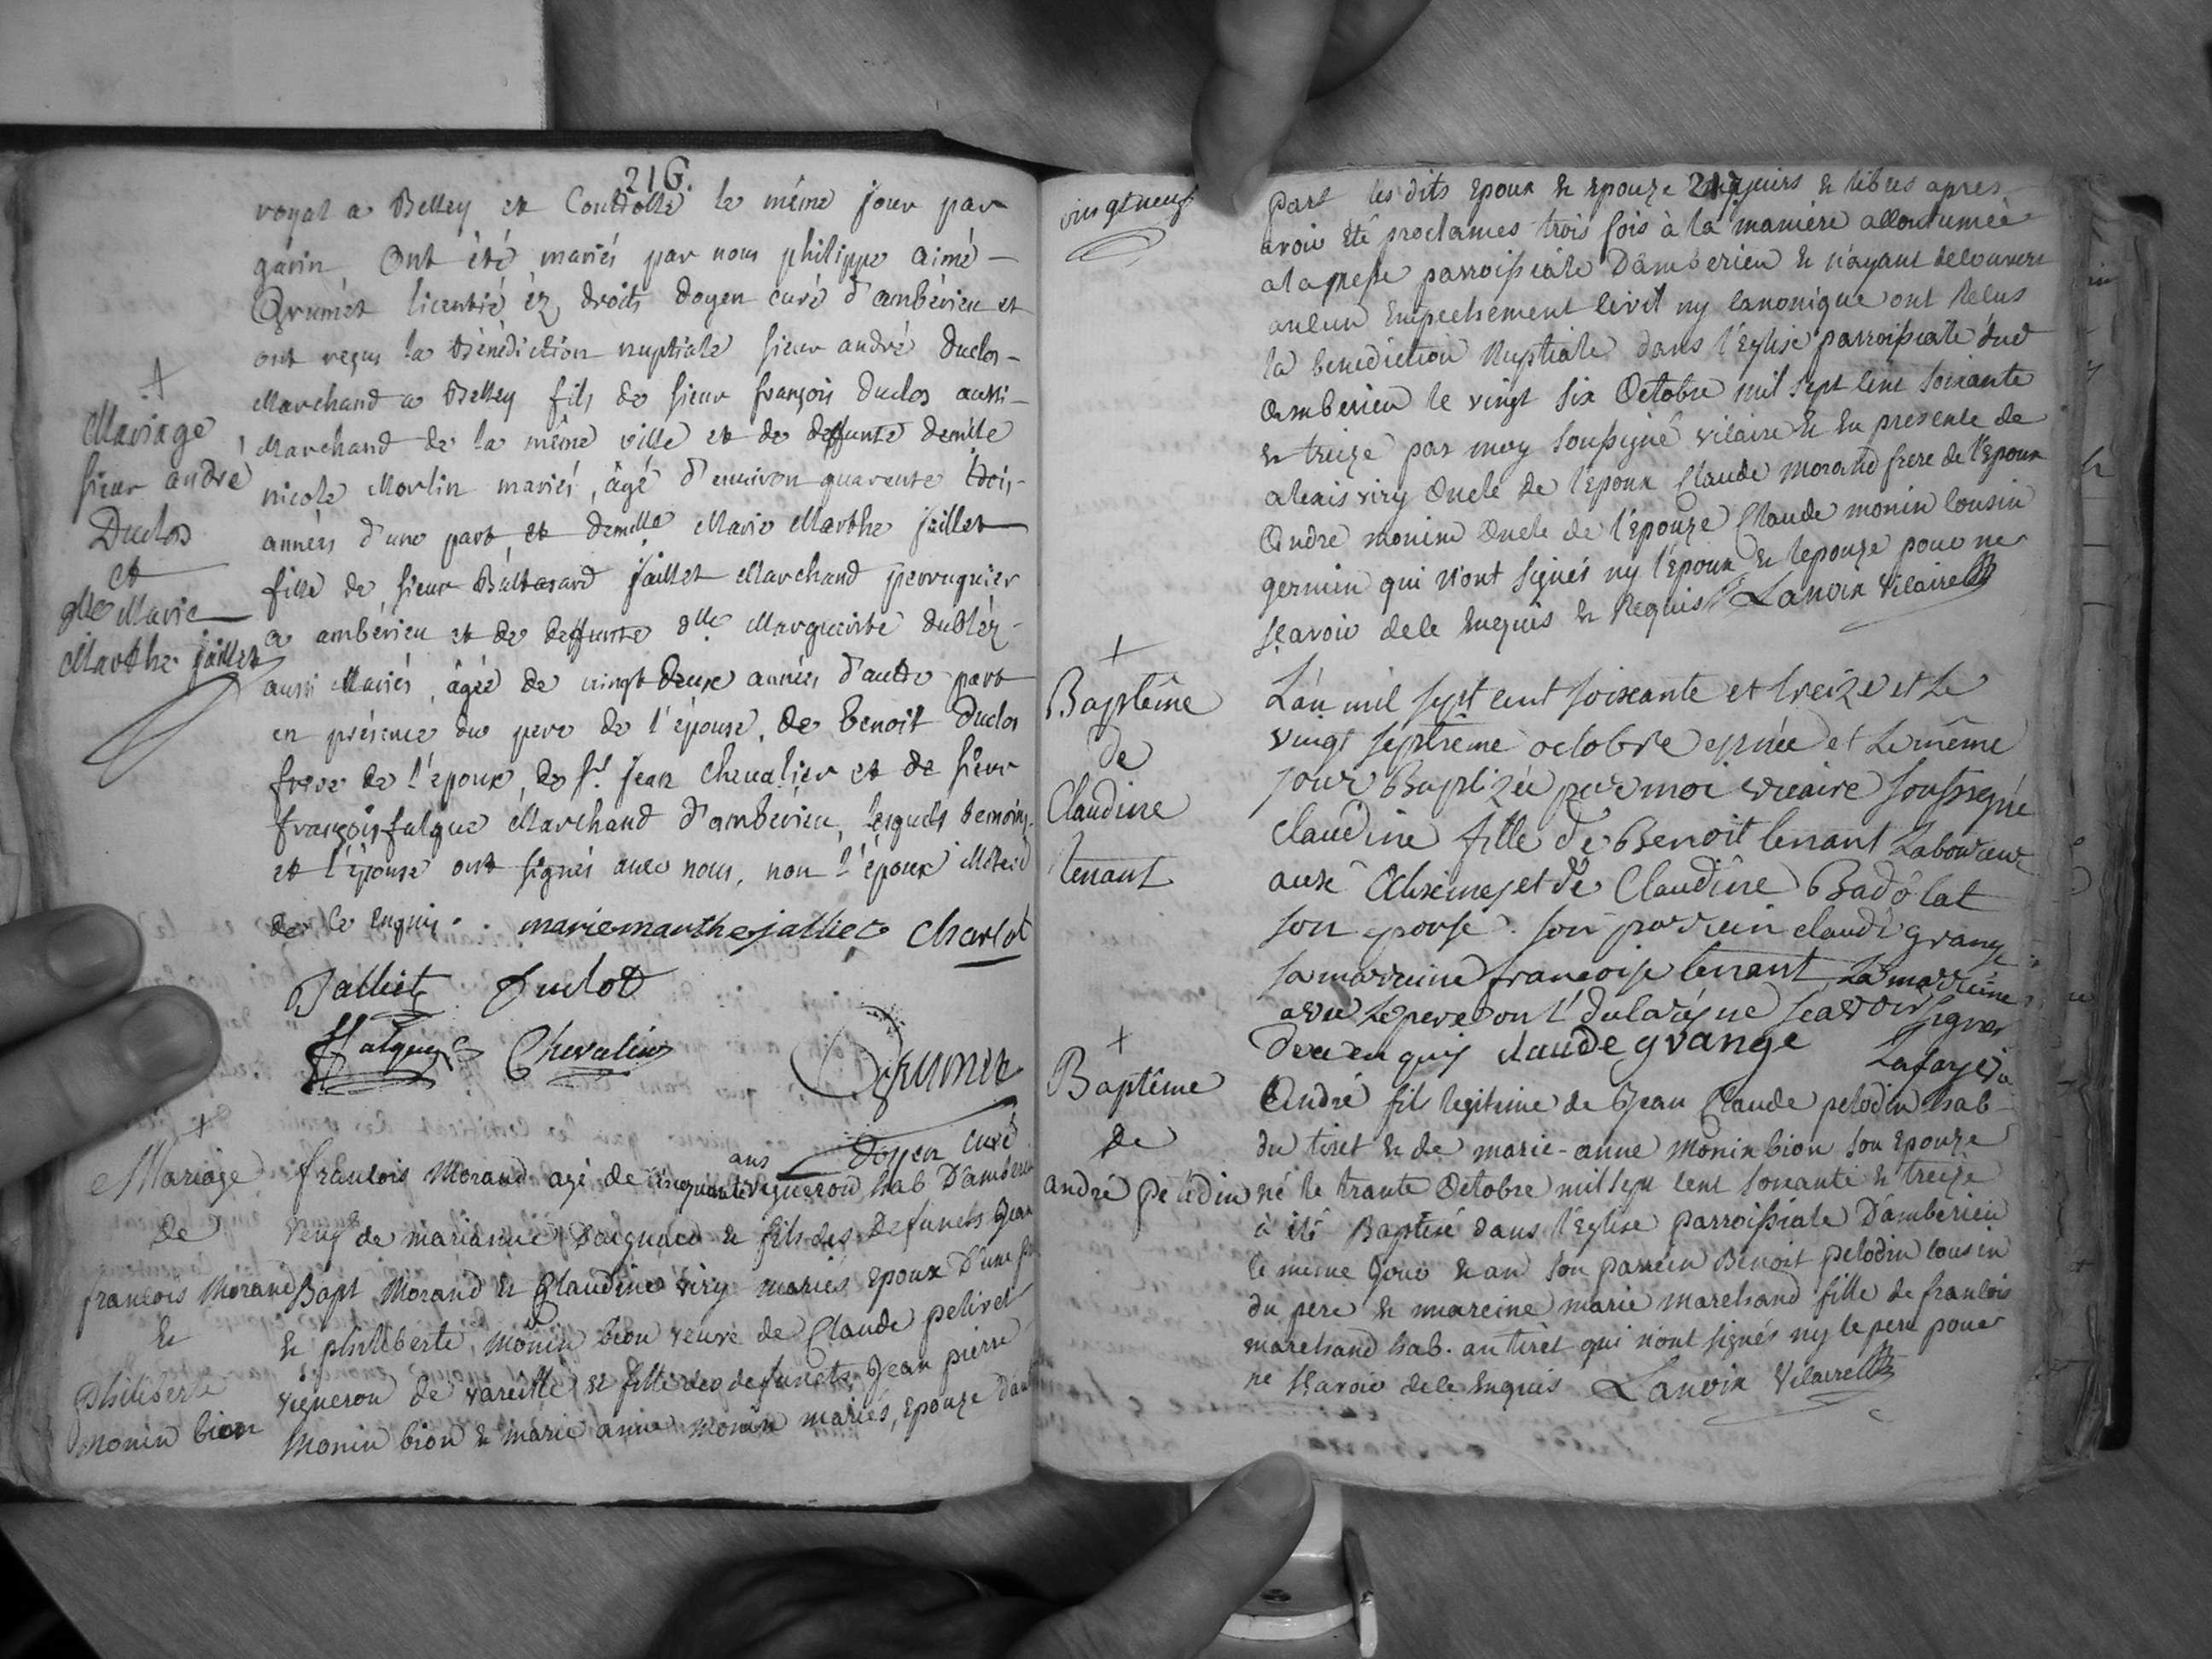 216.
royal a Belley et Controllé le même jour par
garin Ont été mariés par nous philippe aimé
Grumet licentié èz droits doyen curé d'ambérieu et
ont reçus la bénédiction nuptiale sieur andré Duclos
Marchand a Belley fils de sieur françois duclos aussi
Marchand de la même ville et de deffunte demlle
nicole Morlin mariés, âgé d'environ quarente trois
années d'une part, et demlle Marie Marthe jaillet
fille de sieur Baltasard jaillet Marchand perruquier
a ambérieu et de deffunte dlle Marguerite
aussi Mariés, âgée de vingt deux années d'autre part
en présence du pere de l'épouse, de benoit Duclos
frere de l'époux, de sr. jean chevalier et de sieur
françois falque Marchand d'ambérieu, lesquels temoins
et l'épouse ont signés avec nous, non l'époux
de ce enquis.. marie marthe jalliet Charlot
Jalliet Duclot
falque Chevalier Grumet
doyen curé
+
Mariage
sieur andré
Duclos
et
dlle Marie
Marthe jaillet
+
Mariage
de
francois Morand
&
Philiberte
Monin bion
francois Morand agé de cinquante ans vigneron hab D'amberieu
veuf de marianne & fils des defunets Jean
Bapt Morand & Claudine viry mariés Epoux D'une
& philiberte Monin bion veuve de Claude pelivet
vigneron de vareille & fille des defunets Jean pierre
Monin bion & marie anne monin mariés, Epouze d'au
vingt neuf
217
part les dits Epoux & Epouze & libres apres
avoir été proclames trois fois à la maniere accoutumée
a la messe parroissiale D'amberieu & n'ayant decouvert
aucun Empechement civil ny canonique ont Recus
la benediction Nuptiale dans l'Eglise parroissiale dud
Amberieu le vingt six Octobre mil sept cent soixante
& treize par moy soussigné vicaire & En presence de
alexis viry Oncle de l'epoux Claude morand frere de l'Epoux
Andre monin Oncle de l'épouze Claude monin cousin
germin qui n'ont signés ny l'époux & lepouze pour ne
scavoir dece Enquis & Requis Lanoix vicaire
+
Baptême
de
Claudine
tenant
L'an mil sept cent soixante et treize et le
vingt septieme octobre est née et le même
jour Baptizée par moi vicaire soussigné
claudine fille de Benoit tenant Laboureur
aux et de Claudine Badolat
son epouse. son parrein claude grange
sa marreine francoise tenant, La marreine
avec Le pere ont déclaré ne scavoir signer
de ce enquis claude grange Lafay
+
Baptême
de
andré pelodin
André fils legitime de Jean Claude pelodin hab
du tiret & de marie-anne Monin bion son Epouze
né le trante Octobre mil sept cent soixante & treize
à été Baptisé dans l'Eglise parroissiale D'amberieu
le meme jour & an son parrein Benoit pelodin cousin
du pere & mareine marie marchand fille de francois
marchand hab. au tiret qui n'ont signés ny le pere pour
ne scavoir dece Enquis Lanoix vicaire